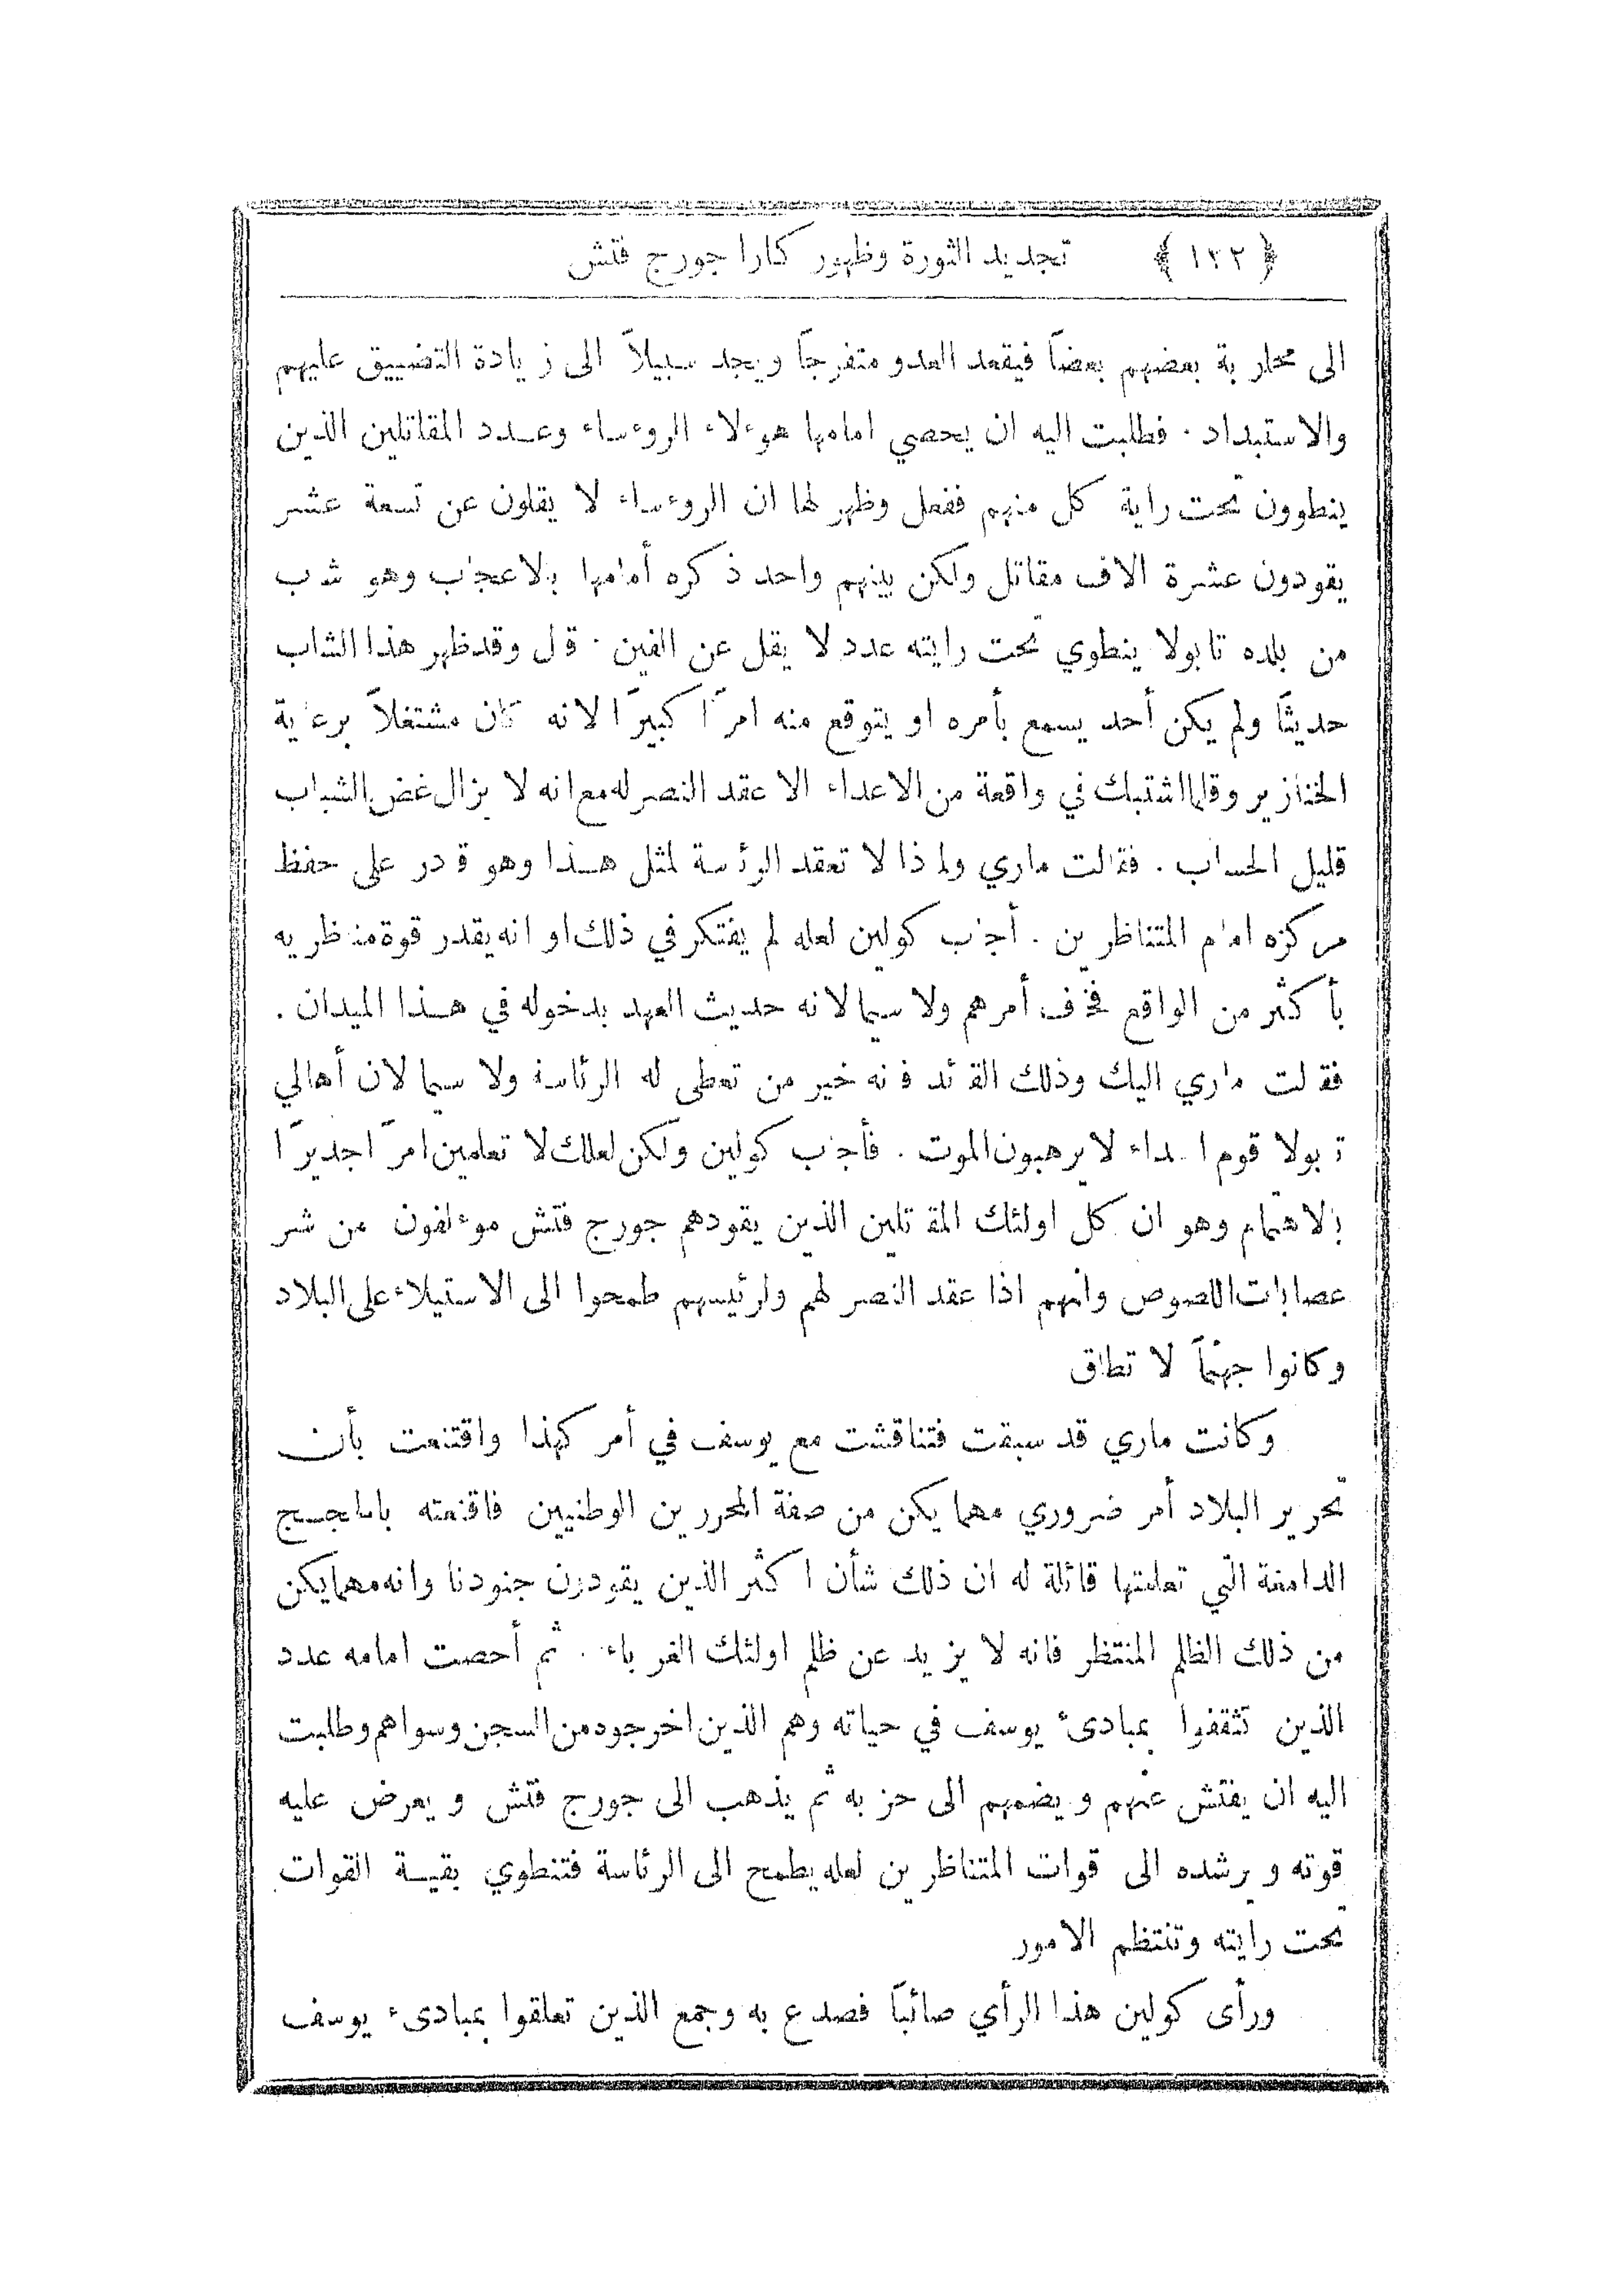 ﴿ ١٣٢ ﴾ تجديد الثورة وظهور كارا جورج فتش
الى محاربة بعضهم بعضاً فيقعد العدو متفرجاً ويجد سبيلاً الى زيادة التضييق عليهم
والاستبداد . فطلبت اليه ان يحصي امامها هوءلاء الروءساء وعدد المقاتلين الذين
ينطوون تحت راية كل منهم ففعل وظهر لها ان الروءساء لا يقلون عن تسعة عشر
يقودون عشرة الاف مقاتل ولكن بينهم واحد ذكره أمامها بالاعجاب وهو شاب
من بلده تابولا ينطوي تحت رايته عدد لا يقل عن الفين . قال وقد ظهر هذا الشاب
حديثاً ولم يكن أحد يسمع بأمره او يتوقع منه امراً كبيراً لانه كان مشتغلاً برعاية
الخنازير وقلما اشتبك في واقعة من الاعداء الا عقد النصر له مع انه لا يزال غض الشباب
قليل الحساب . فقالت ماري ولماذا لا تعقد الرئاسة لمثل هذا وهو قادر على حفظ
مركزه امام المتناظرين . أجاب كولين لعله لم يفتكر في ذلك او انه يقدر قوة مناظريه
بأكثر من الواقع فخاف أمرهم ولا سيما لانه حديث العهد بدخوله في هذا الميدان .
فقالت ماري اليك وذلك القائد فانه خير من تعطى له الرئاسة ولا سيما لان أهالي
تابولا قوم اشداء لا يرهبون الموت . فأجاب كولين ولكن لعلك لا تعلمين امراً جديراً
بالاهتمام وهو ان كل اولئك المقاتلين الذين يقودهم جورج فتش موءلفون من شر
عصابات اللصوص وانهم اذا عقد النصر لهم ولرئيسهم طمحوا الى الاستيلاء على البلاد
وكانوا جهنماً لا تطاق
وكانت ماري قد سبقت فتناقشت مع يوسف في أمر كهذا واقتنعت بأن
تحرير البلاد أمر ضروري مهما يكن من صفة المحررين الوطنيين فاقنعته بالحجج
الدامغة التي تعلمتها قائلة له ان ذلك شأن اكثر الذين يقودون جنودنا وانه مهما يكن
من ذلك الظلم المنتظر فانه لا يزيد عن ظلم اولئك الغرباء . ثم أحصت امامه عدد
الذين تثقفوا بمبادىء يوسف في حياته وهم الذين اخرجوه من السجن وسواهم وطلبت
اليه ان يفتش عنهم ويضمهم الى حزبه ثم يذهب الى جورج فتش ويعرض عليه
قوته ويرشده الى قوات المتناظرين لعله يطمح الى الرئاسة فتنطوي بقية القوات
تحت رايته وتنتظم الامور
ورأى كولين هذا الرأي صائباً فصدع به وجمع الذين تعلقوا بمبادىء يوسف